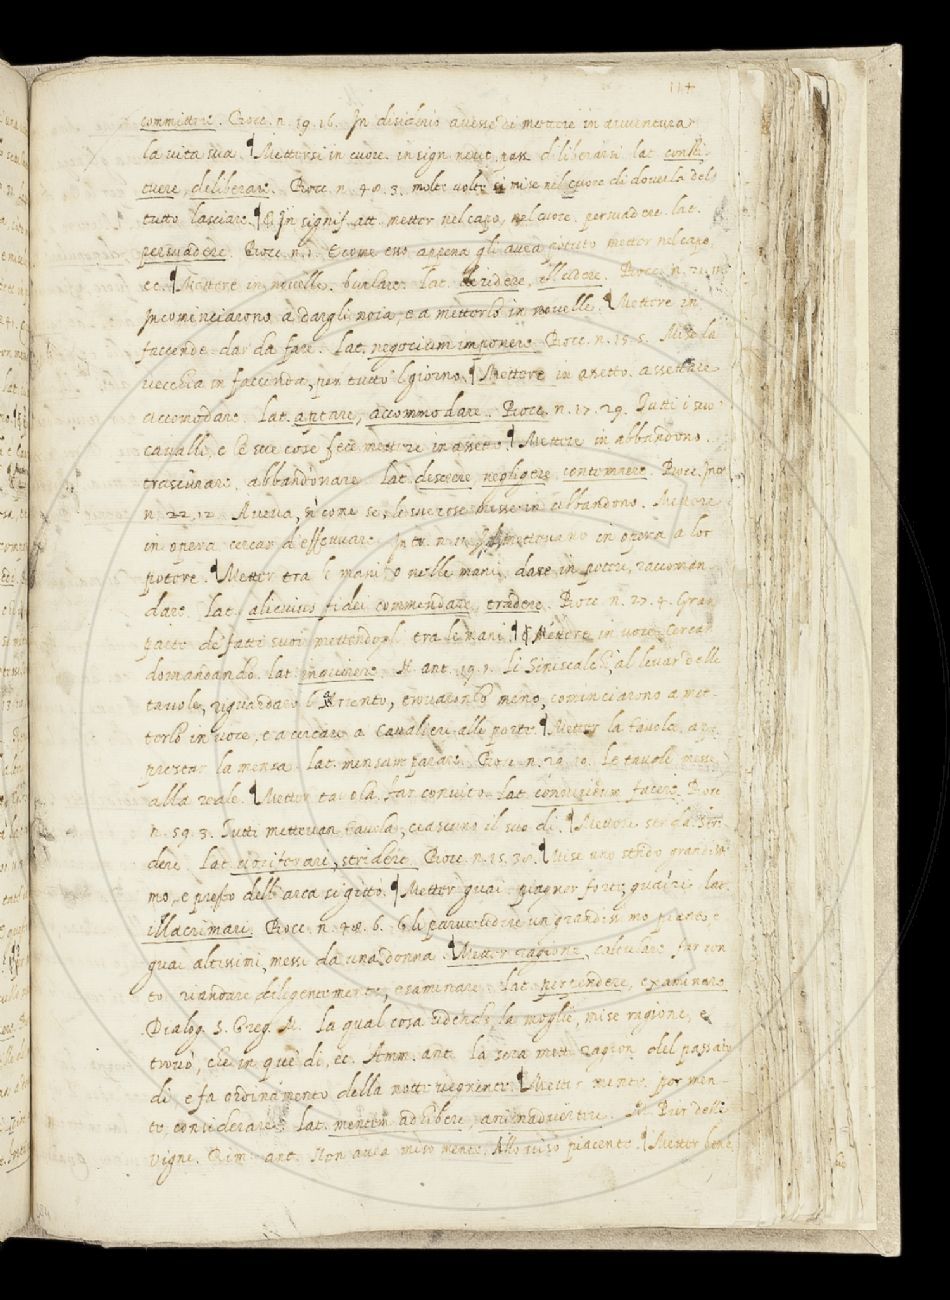 114
committere. Bocc. n. 19. 16. In disidèrio avesse di mettere in avventura
la vita sua. ¶ Mettersi in cuore. in sign. neut. pass. diliberarsi lat. consti-
tuere, deliberare. Bocc. n. 48. 3. molte volte si mise nel cuore di doverla del
tutto lasciare. ¶ E in signif. att. metter nel capo, nel cuore. persuadere. lat.
persuadere. Bocc. n. 1. E come esso appena gli avea potuto metter nel capo,
ec. ¶ Mettere in novelle. burlare. lat. deridere, illudere. Bocc. n.
Incominciarono à dargli noia, e a metterlo in novelle. ¶ Mettere in
faccende. dar da fare. Lat. negocium imponere. Bocc. n. 15. 5. Mise la
vecchia in faccenda, per tutto 'l giorno. ¶ Mettere in assetto. assettare
accomodare. Lat. aptare, accommodare. Bocc. n. 17. 29. Tutti i suo'
cavalli, e le sue cose fece mettere in assetto. ¶ Mettere in abbandono.
trascurare, abbandonare lat. deserere, negligere, contemnere. Bocc.
n. 22. 12. Aveva, sì come se, le sue cose messe in abbandono. Mettere
in opera cercar d'effettuare. mettevano in opera a lor
potere. ¶ Metter tra le mani, o nelle mani, dare in potere, raccoman-
dare. lat. alicuius fidei commendare, tradere. Bocc. n. 27. 4. Gran
parte de' fatti suoi mettendogli tra le mani. ¶ Mettere in voce. cercar
domandando. lat. inquirere. N. ant. 19. 1. Li Siniscalchi, al levar delle
tavole, riguardaro l'argento, trovaronlo meno, cominciarono a met-
terlo in voce, e a cercare a Cavalieri alle porte. ¶ Metter la tavola. ap-
prestar la mensa. Lat. mensam parare. Bocc. n. 29. Le tavole messe
alla reale. ¶ Metter tavola. far convito. lat. convivium facere. Bocc.
n. 59. 3. Tutti mettevan tavola, ciascuno il suo dì. ¶ Mettere strida. stri-
dere. Lat. vociferare, stridere. Bocc. n. 15. Mise uno strido grandissi-
mo, e presto dell'arca si gittò. ¶ Metter guai. piagner forte, guaire. lat.
illacrimari. Bocc. n. 48. 6. Gli parve udire un grandissimo pianto e
guai altissimi, messi da una donna. ¶ Metter ragione, calculare far con-
to riandare diligentemente, esaminare. lat. perpendere, examinare.
Dialog. S. Greg. M. La qual cosa udendo la moglie, mise ragione, e
trovò, che in que' dì, ec. Amm. ant. la sera metti ragion del passato
dì, e fa ordinamento della notte vegnente. ¶ Metter mente. por men-
te, considerare. lat. mentem adhibere, animadvertere. M. Pier delle
vigne. Rim. ant. Non avea miso mente, Allo viso piacente. ¶ Metter bene